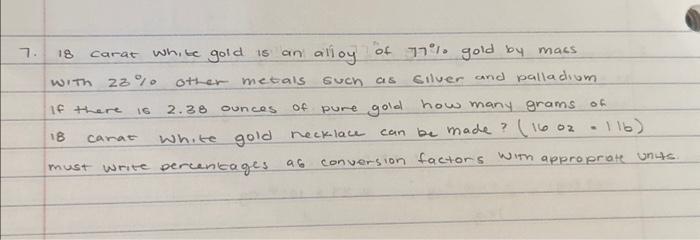 7. 18 carat white gold is an alloy of 77% gold by mass
with 23% other metals such as silver and palladium
If there is 2.38 ounces of pure gold how many grams of
18 carat white gold necklace can be made? (16 oz = 1 lb)
must write percentages as conversion factors with approprate units.